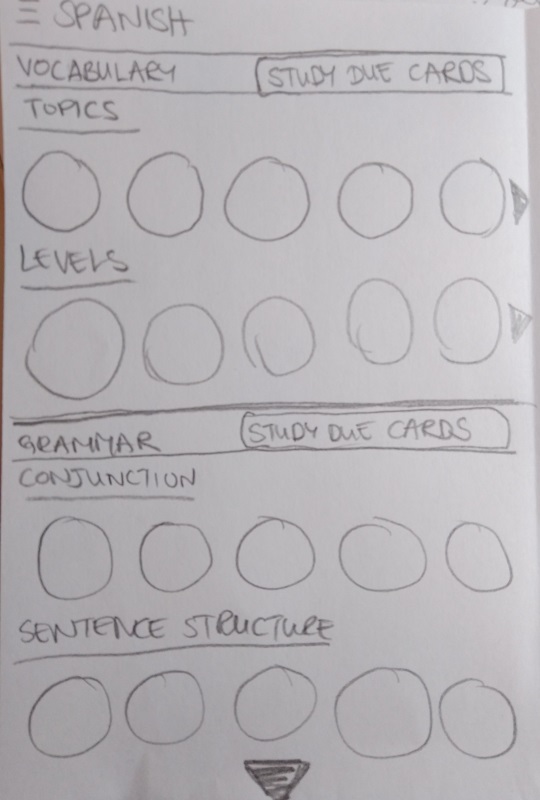 SPANISH
VOCABULARY STUDY DUE CARDS
TOPICS
LEVELS
GRAMMAR STUDY DUE CARDS
CONJUNCTION
SENTENCE STRUCTURE